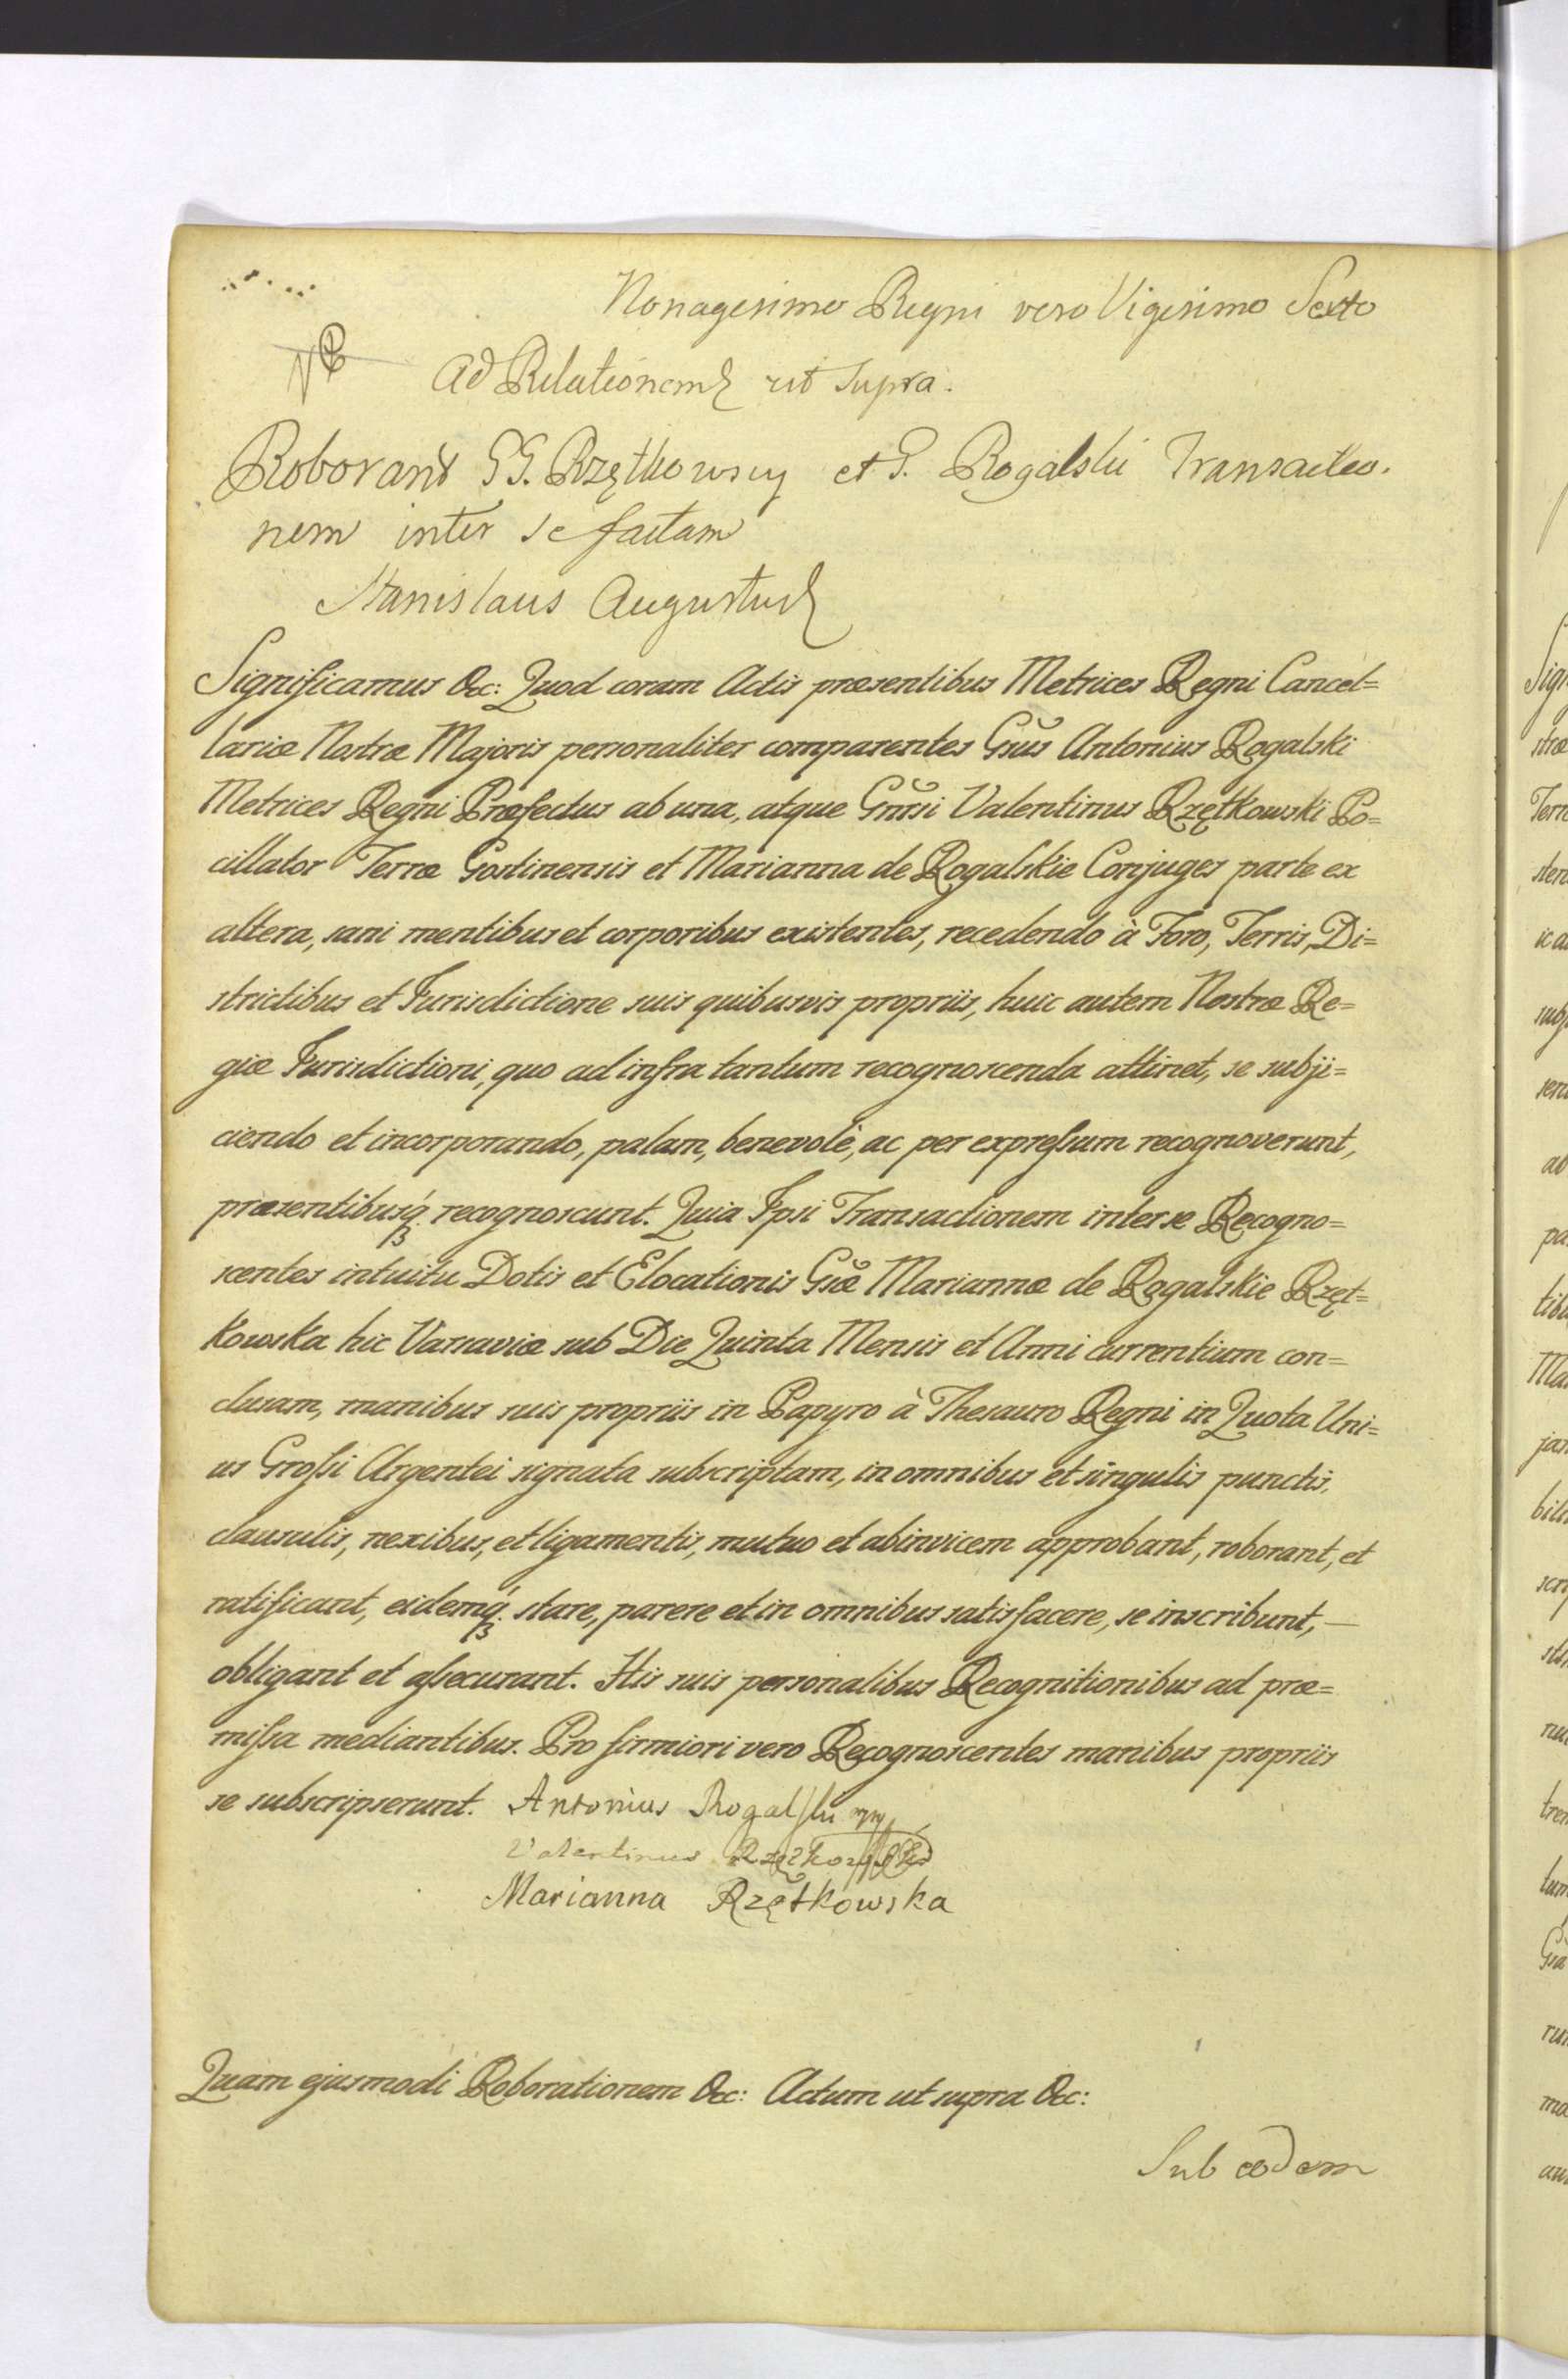 Nonagesimo Regni vero Vigesimo Sexto
NB
Ad Relationem ut supra.
Roborant GG. Rzętkowscy et G. Rogalski Transactio-
nem inter se factam
Stanislaus Augustus
Significamus &c: Quod coram Actis præsentibus Metrices Regni Cancel=
lariæ Nostræ Majoris personaliter comparentes Gsus Antonius Rogalski
Metrices Regni Præfectus ab una, atque Gnrsi Valentinus Rzętkowski Po=
cillator Terræ Gostinensis et Marianna de Rogalskie Conjuges parte ex
altera, sani mentibus et corporibus existentes, recedendo à Foro, Terris, Di=
strictibus et Jurisdictione suis quibusvis propriis, huic autem Nostræ Re=
giæ Jurisdictioni, quo ad infra tantum recognoscenda attinet, se subji=
ciendo et incorporando, palam, benevolè, ac per expreſsum recognoverunt,
præsentibusq́ꝫ recognoscunt. Quia Ipsi Transactionem inter se Recogno=
scentes intuitu Dotis et Elocationis Gsæ Mariannæ de Rogalskie Rzęt=
kowska hic Varsaviæ sub Die Quinta Mensis et Anni currentium con=
clusam, manibus suis propriis in Papyro à Thesauro Regni in Quota Uni=
us Groſsi Argentei signata subscriptam, in omnibus et singulis punctis,
clausulis, nexibus, et ligamentis, mutuo et abinvicem approbant, roborant, et
ratificant, eidemq́ꝫ stare, parere et in omnibus satisfacere, se inscribunt, —
obligant et aſsecurant. His suis personalibus Recognitionibus ad præ=
miſsa mediantibus. Pro firmiori vero Recognoscentes manibus propriis
se subscripserunt. Antonius Rogalski mp
Valentinus Rzętkowski
Marianna Rzętkowska
Quam ejusmodi Roborationem &c: Actum ut supra &c:
Sub eodem